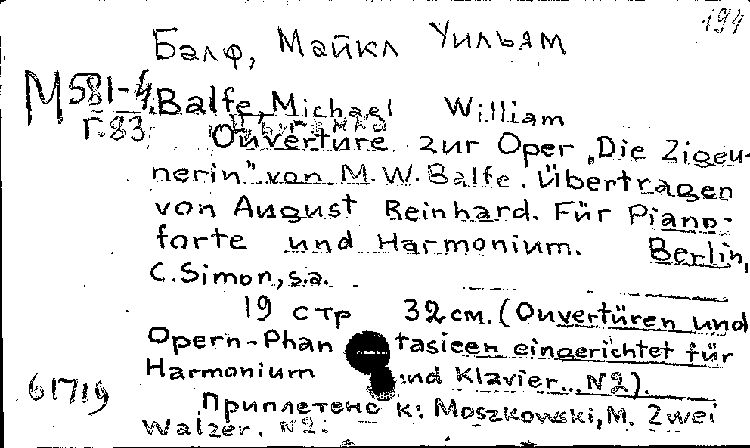 194
Балф, Майкл Уильям
М 581-4
Г.83
Balfe, Michael William
Ouvertüre zur Oper „Die Zigeu-
nerin" von M. W. Balfe. Übertragen
von August Reinhard. Für Piano-
forte und Harmonium. Berlin,
C. Simon, s.a.
19 стр 32 см. (Ouvertüren und
Opern-Phan tasieen eingerichtet für
Harmonium und Klavier... N2).
61719
Приплетено к: Moszkowski, M. Zwei
Walzer. N2.